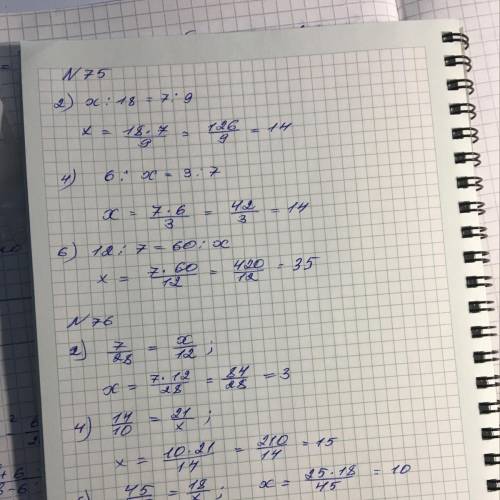 N 75
2) x : 18 = 7 : 9
x = 18·7/9 = 126/9 = 14
4) 6 : x = 3 : 7
x = 7·6/3 = 42/3 = 14
6) 12 : 7 = 60 : x
x = 7·60/12 = 420/12 = 35
N 76
2) 7/28 = x/12 ;
x = 7·12/28 = 84/28 = 3
4) 14/10 = 21/x ;
x = 10·21/14 = 210/14 = 15
45/ = 18/x ; x = 25·18/45 = 10